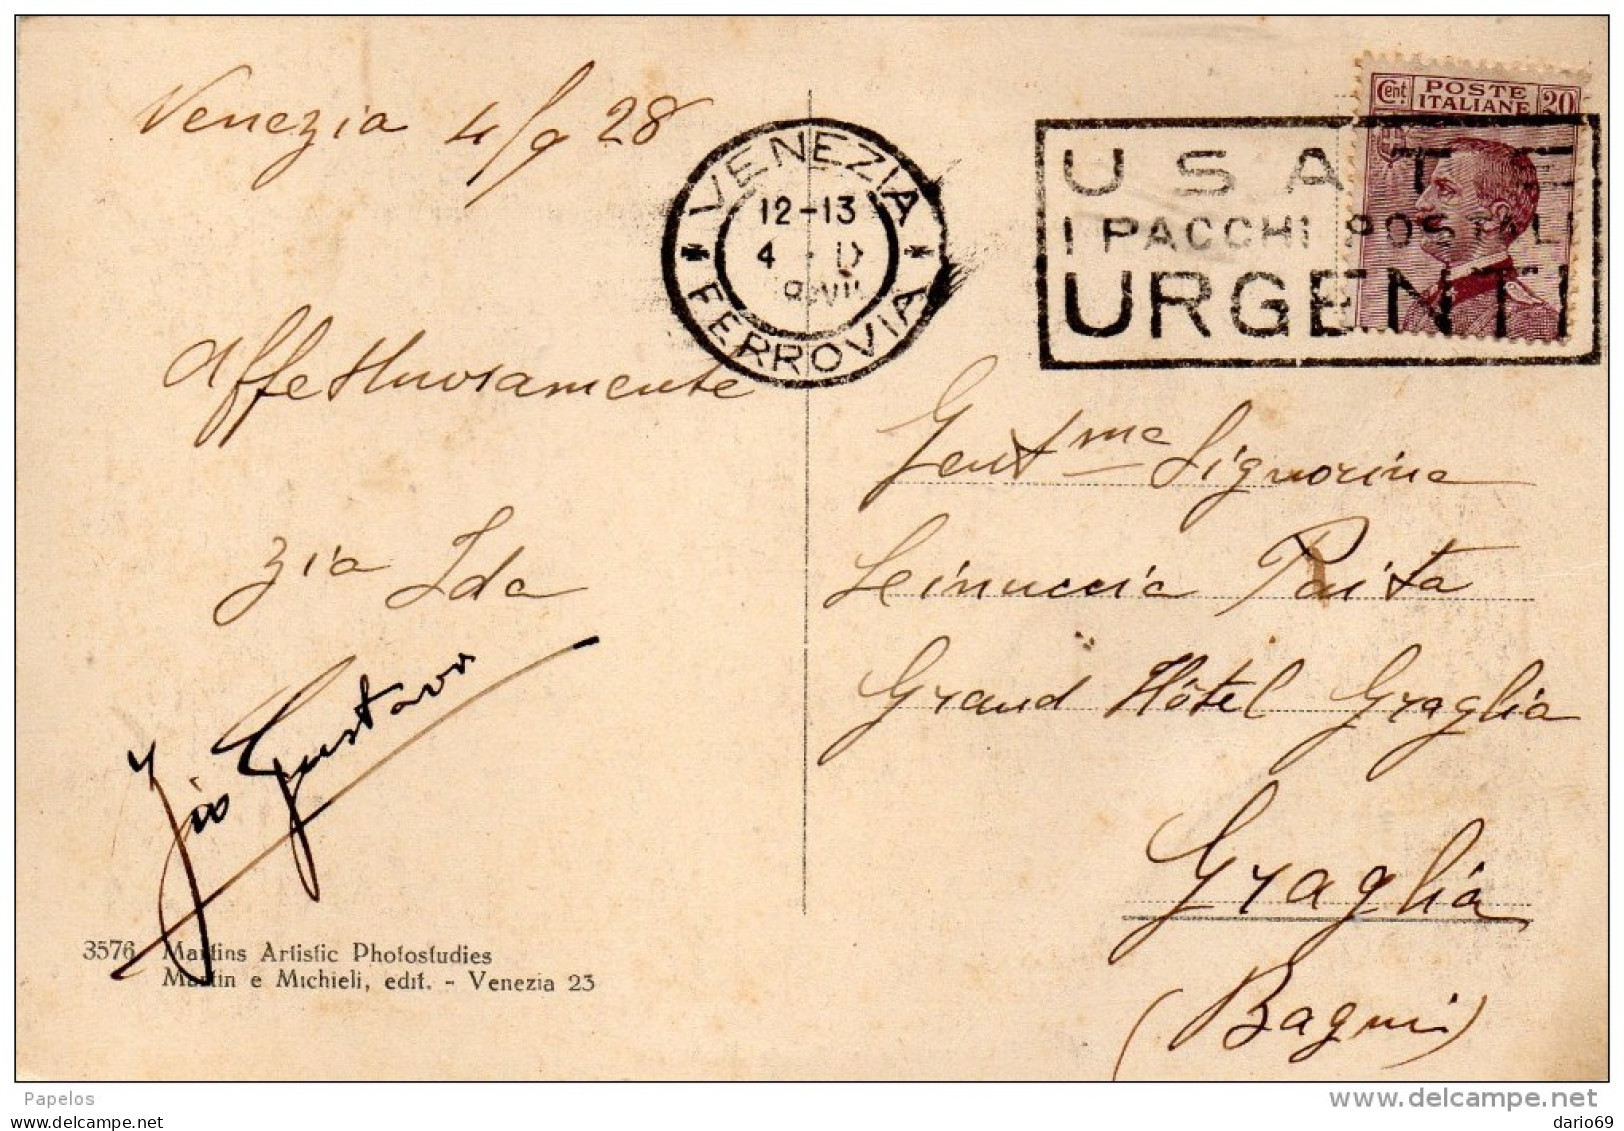 Venezia 4/9 28
VENEZIA
12-13
4 · IX
VII
FERROVIA
Cent POSTE ITALIANE 20
USATE
I PACCHI POSTALI
URGENTI
Affettuosamente
zia Ida
Zio Gustavo
Gentme Signorina
Leinuccia Paita
Grand Hôtel Graglia
Graglia
(Bagni)
3576 Martins Artistic Photostudies
Martin e Michieli, edit. - Venezia 23
Papelos
www.delcampe.net
dario69